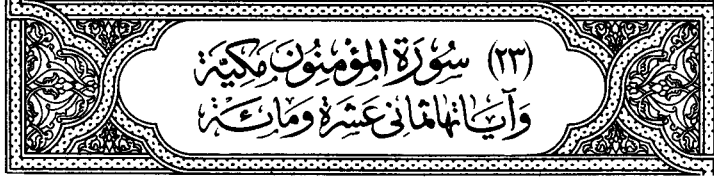 (٢٣) سُوْرَة المؤْمِنُونَ مَكيَّة
وَآيَاتهَا ثمانى عَشرة وَمائَة